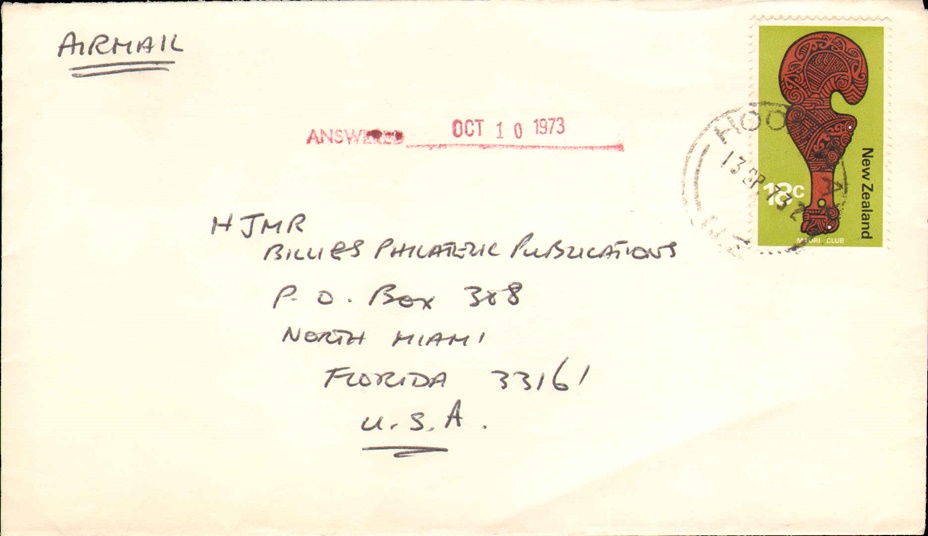 AIRMAIL
ANSWERED OCT 10 1973
HJMR
BILLIES PHILATELIC PUBLICATIONS
P. O. Box 388
NORTH MIAMI
FLORIDA 33161
U.S.A.
18c
New Zealand
MAORI CLUB